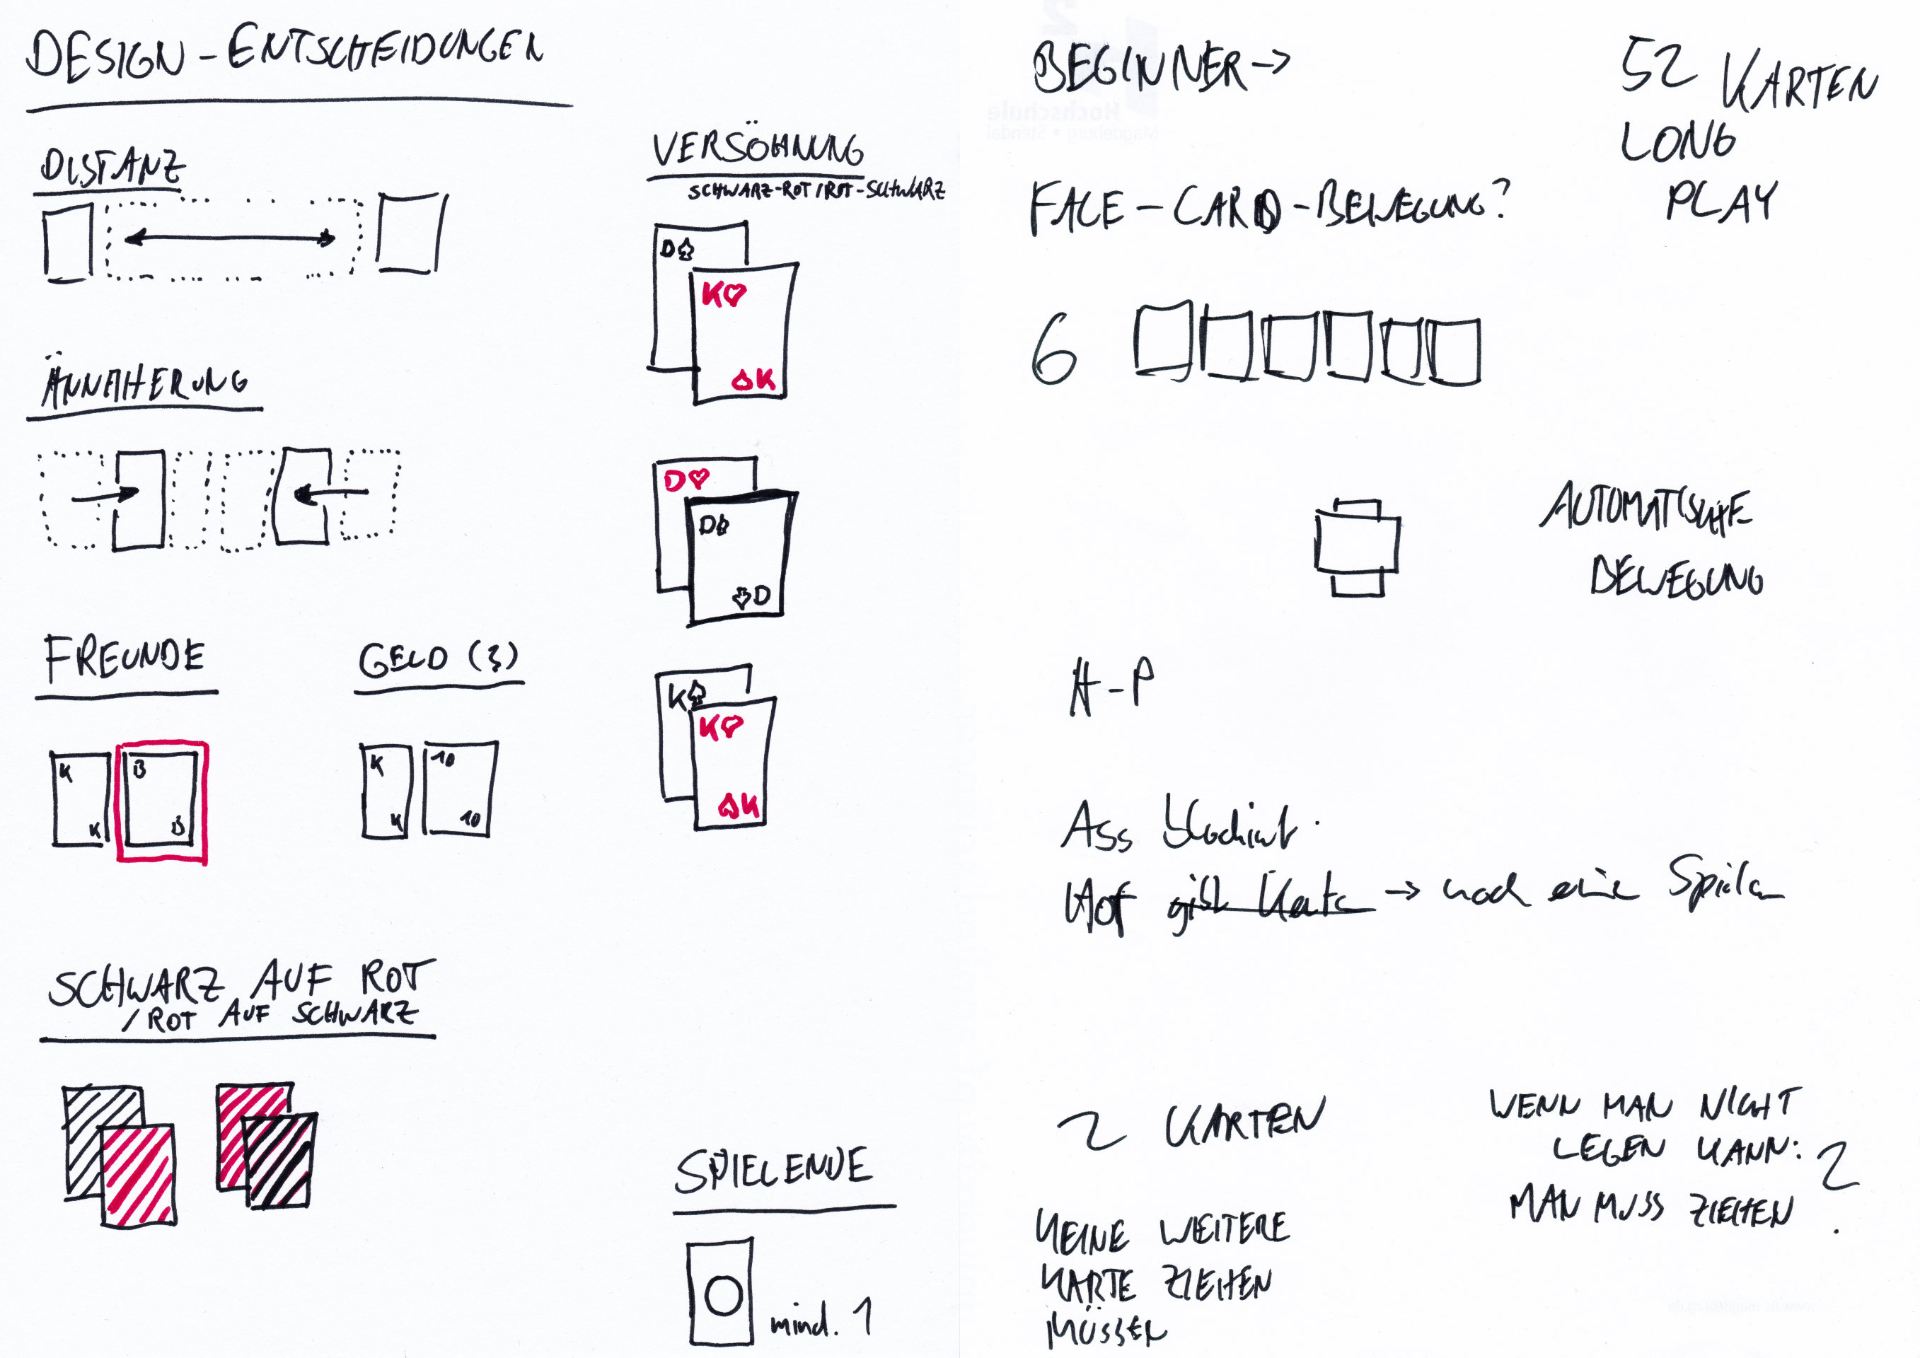 DESIGN-ENTSCHEIDUNGEN
DISTANZ
ANNÄHERUNG
FREUNDE
K
K
B
B
GELD (3)
K
K
10
10
SCHWARZ AUF ROT
/ROT AUF SCHWARZ
VERSÖHNUNG
SCHWARZ-ROT/ROT-SCHWARZ
D♤
K♡
♤K
D♡
D♤
♤D
K♤
K♡
♤K
SPIELENDE
mind. 1
BEGINNER→
52 KARTEN
LONG
PLAY
Hochschule
Magdeburg • Stendal
FACE-CARD-BEWEGUNG?
6
AUTOMATISCHE
BEWEGUNG
H-P
Ass blockiert.
Hof gibt Karte → noch eine Spielen
2 KARTEN
KEINE WEITERE
KARTE ZIEHEN
MÜSSEN
WENN MAN NICHT
LEGEN KANN:
MAN MUSS ZIEHEN
?